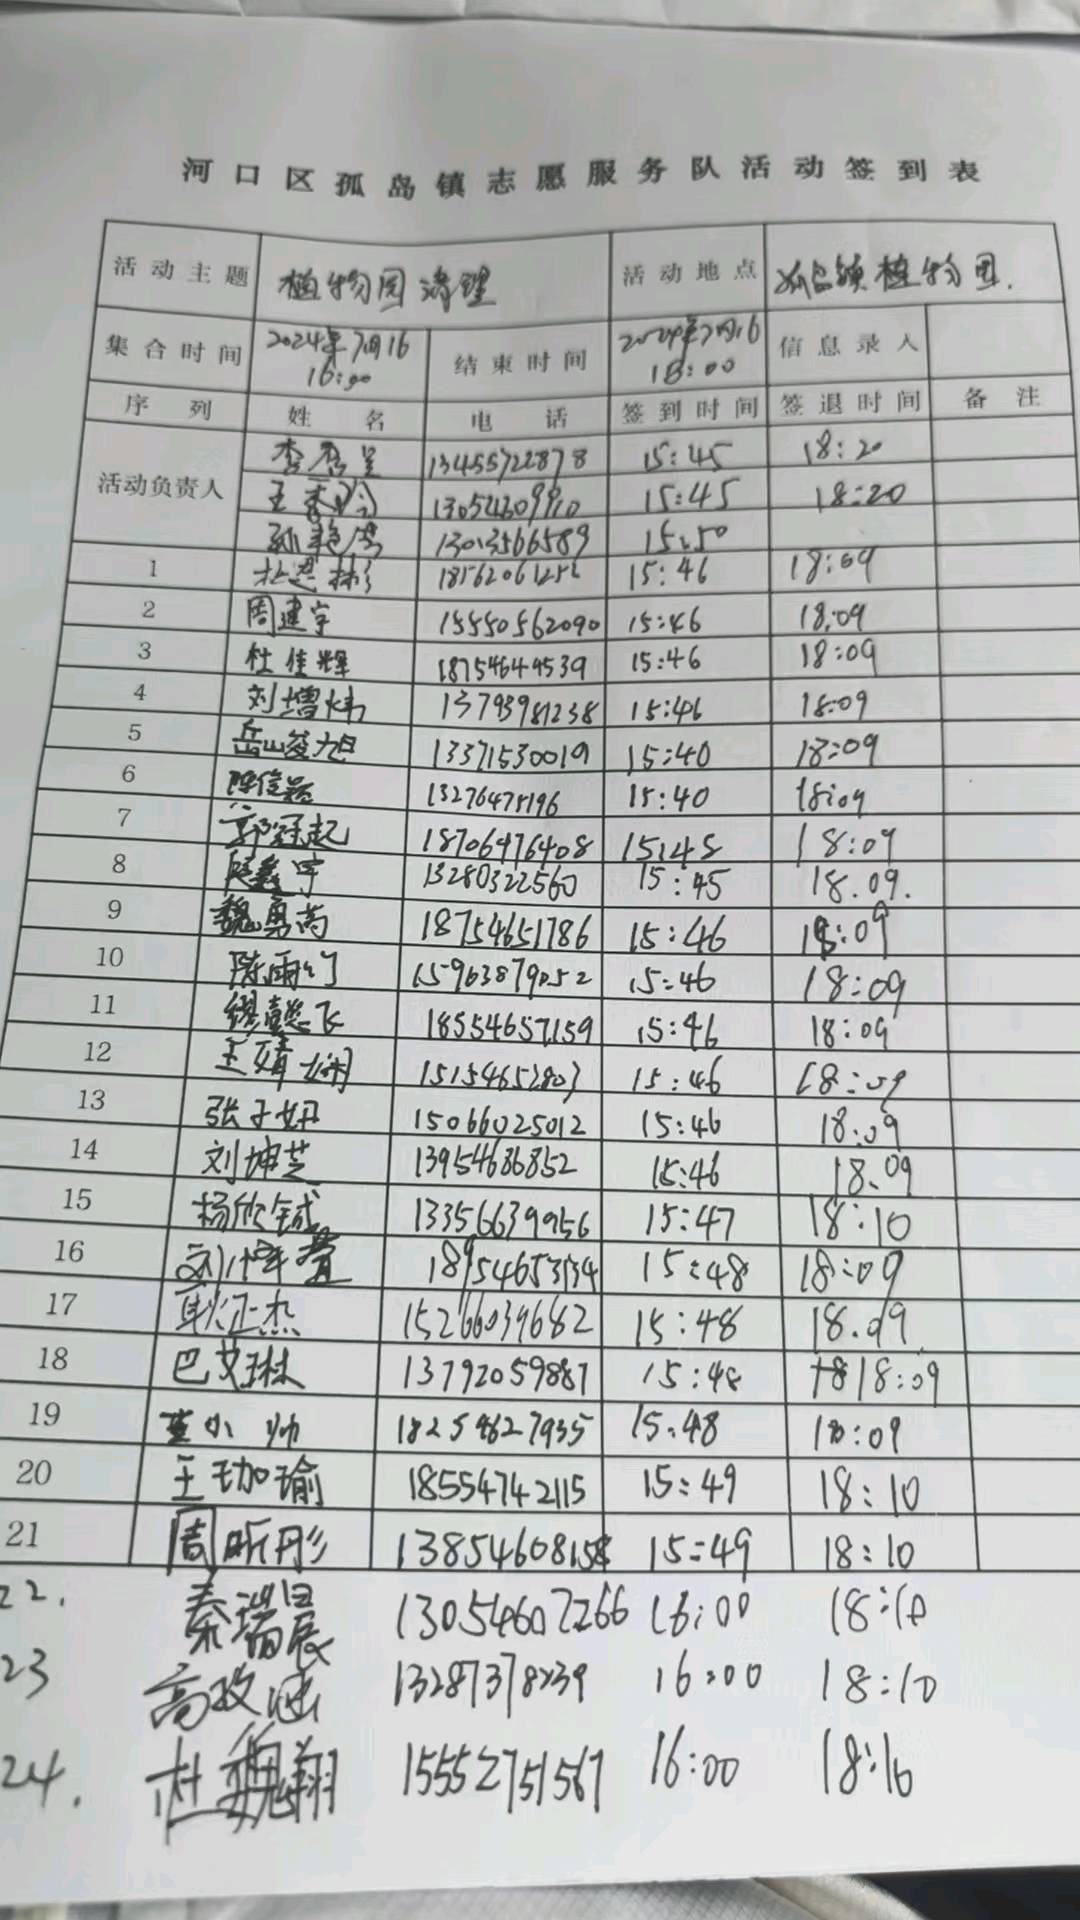 河口区孤岛镇志愿服务队活动签到表
活动主题 植物园清理 活动地点 孤岛镇植物园.
集合时间 2024年7月16 16:00 结束时间 2024年7月16 18:00 信息录入
序列 姓名 电话 签到时间 签退时间 备注
活动负责人 13455722878 15:45 18:20
王香玲 13054609910 15:45 18:20
孙艳 13013566589 15:50
1 杜思彬 15:46 18:09
2 周建宇 15550562090 15:46 18:09
3 杜佳辉 18754644539 15:46 18:09
4 刘增炜 13793981238 15:46 18:09
5 岳峻旭 13371530019 15:40 18:09
6 陈信颖 13276475196 15:40 18:09
7 郭冠起 18706476408 15:45 18:09
8 鑫宇 13280322560 15:45 18.09.
9 魏勇尚 18754651786 15:46 18:09
10 陈雨 15963879052 15:46 18:09
11 缪懿飞 18554657159 15:46 18:09
12 王婧娴 15:46 18:09
13 张子妍 15066025012 15:46 18:09
14 刘坤芝 13954686852 15:46 18.09
15 杨欣铖 13356639956 15:47 18:10
16 刘 18954653134 15:48 18:09
17 耿正杰 15266039682 15:48 18.09
18 巴艾琳 13792059887 15:48 18 18:09
19 董小帅 18254627935 15:48 18:09
20 王珈瑜 18554742115 15:49 18:10
21 周昕彤 13854608158 15:49 18:10
22. 秦瑞晨 13054607266 16:00 18:10
23 高政 13287378239 16:00 18:10
24. 杜魏翔 15552751567 16:00 18:10